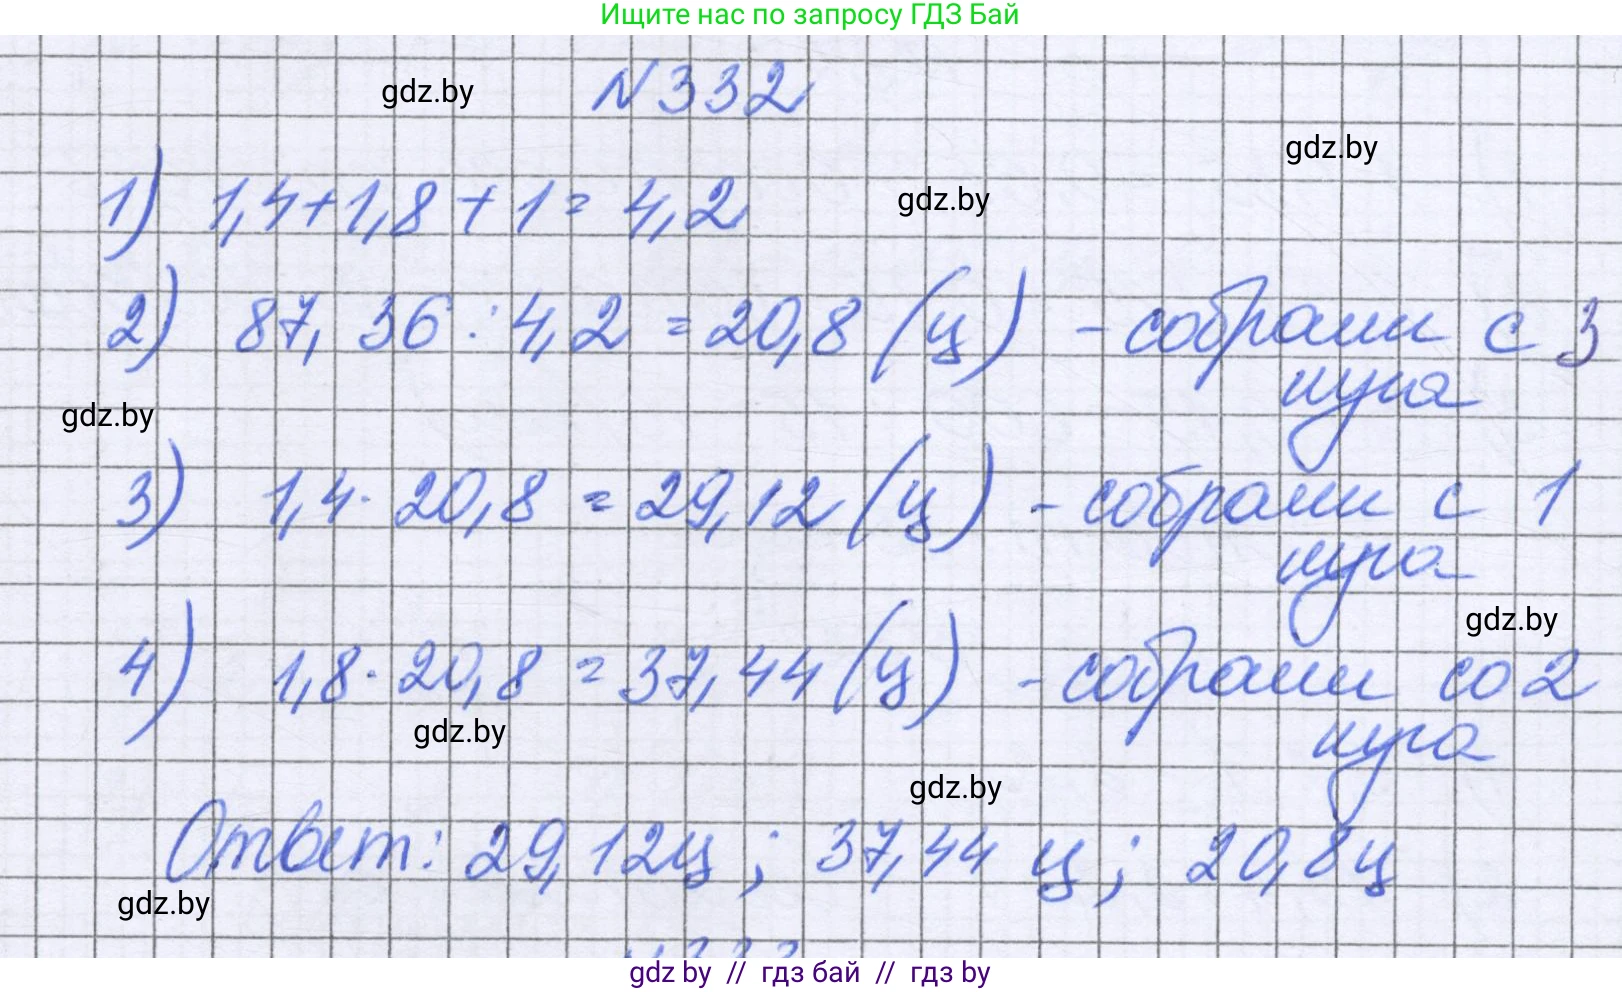 Ищите нас по запросу ГДЗ Бай
gdz.by
N332
gdz.by
1) 1,4+1,8+1=4,2
gdz.by
2) 87,36:4,2=20,8(ц) - собрали с 3
луга
gdz.by
3) 1,4·20,8=29,12(ц) - собрали с 1
луга
gdz.by
4) 1,8·20,8=37,44(ц) - собрали со 2
луга
gdz.by
gdz.by
Ответ: 29,12ц; 37,44 ц; 20,8ц
gdz.by
gdz by // гдз бай // гдз by